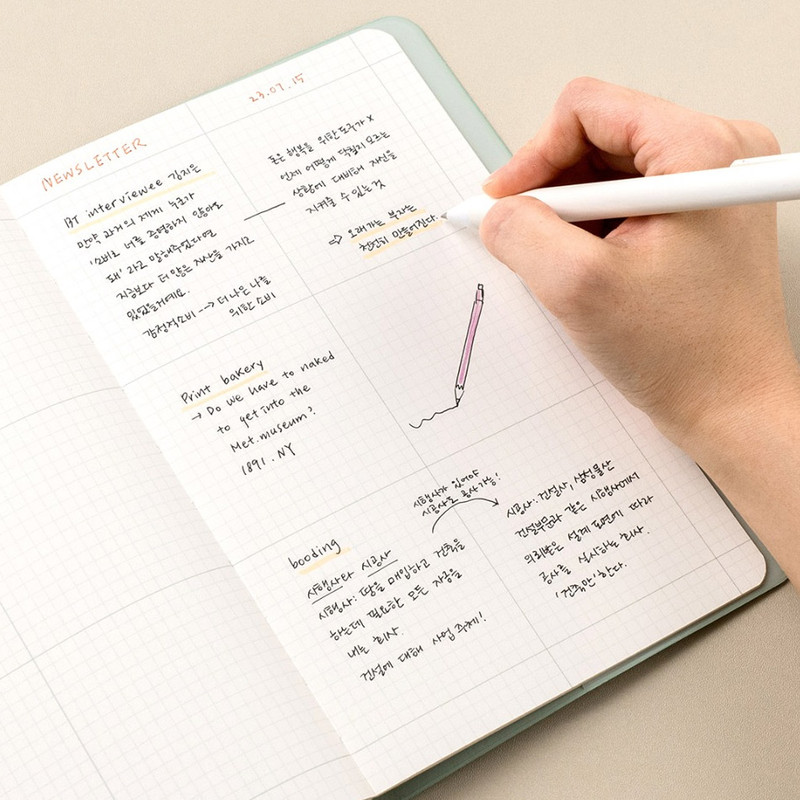 NEWSLETTER
23.07.15
BT interviewee 김지은
만약 과거의 제게 누군가
'소비로 너를 증명하지 않아도
돼' 라고 말해주었다면
지금보다 더 많은 자산을 가지고
있었을거예요.
감정적소비 --> 더 나은 나를
위한 소비
돈은 행복을 위한 도구가 X
언제 어떻게 닥칠지 모르는
상황에 대비해 자신을
지켜줄 수 있는 것
⇨ 오래가는 부자는
천천히 만들어진다.
Print bakery
→ Do we have to naked
to get into the
Met. museum?
1891. NY
booding
시행사 시공사
시행사: 땅을 매입하고 건축을
하는데 필요한 모든 자금을
내는 회사.
건설에 대해 사업 주체!
시행사가 있어야
시공사도 공사 가능!
시공사: 건설사, 삼성물산
건설부문과 같은 시행사에서
의뢰받은 설계 도면에 따라
공사를 실시하는 회사.
'건축만' 한다.